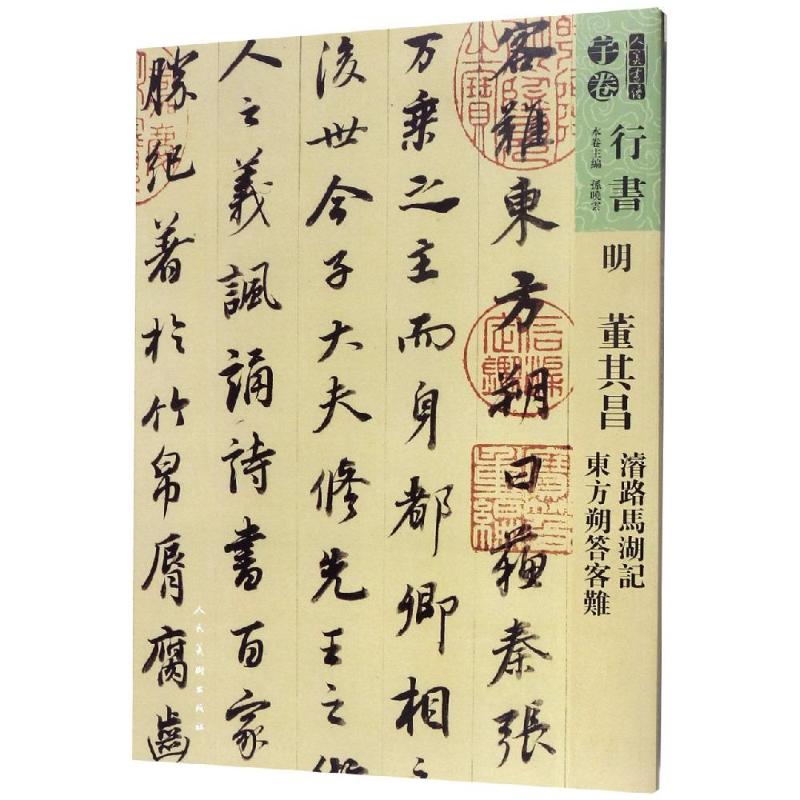 人美書譜
子卷
行書
本卷主編 孫曉雲
明 董其昌
濬路馬湖記
東方朔答客難
客難東方朔曰蘇秦張
万乗之主而身都卿相之
後世今子大夫修先王之術
人之義諷誦詩書百家
勝紀著於竹帛脣腐齒
人民美術出版社